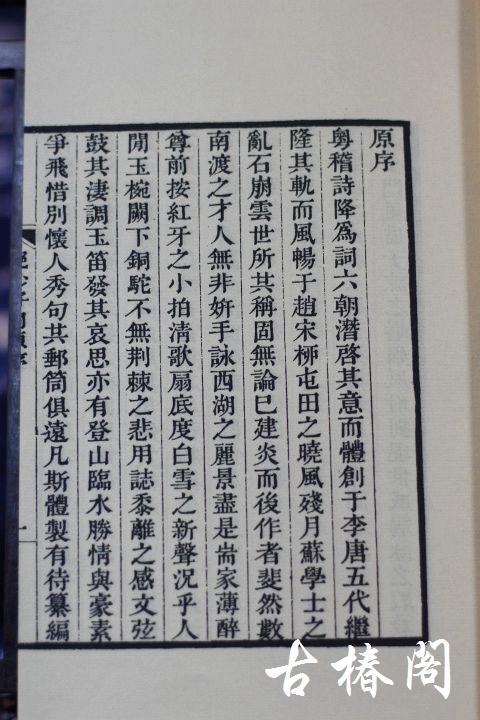 原序
粵稽詩降爲詞六朝潛啓其意而體創于李唐五代繼
隆其軌而風暢于趙宋柳屯田之曉風殘月蘇學士之
亂石崩雲世所其稱固無論已建炎而後作者斐然數
南渡之才人無非姸手詠西湖之麗景盡是耑家薄醉
尊前按紅牙之小拍淸歌扇底度白雪之新聲況乎人
閒玉椀闕下銅駝不無荆棘之悲用誌黍離之感文弦
鼓其淒調玉笛發其哀思亦有登山臨水勝情與豪素
爭飛惜別懷人秀句其郵筒俱遠凡斯體製有待纂編
古椿閣